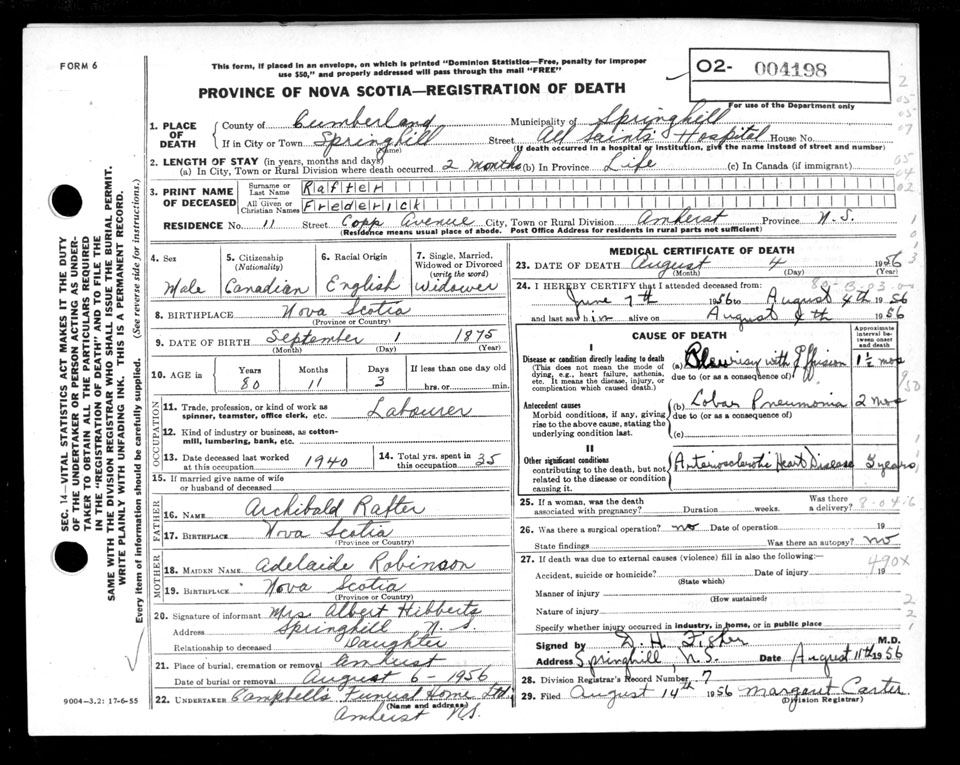 FORM 6
This form, if placed in an envelope, on which is printed "Dominion Statistics—Free, penalty for improper
use $50," and properly addressed will pass through the mail "FREE"
O2- 004198
For use of the Department only
PROVINCE OF NOVA SCOTIA—REGISTRATION OF DEATH
1. PLACE OF DEATH { County of Cumberland Municipality of Springhill
If in City or Town Springhill (Name) Street All Saints Hospital House No.
(If death occurred in a hospital or institution, give the name instead of street and number)
2. LENGTH OF STAY (in years, months and days)
(a) In City, Town or Rural Division where death occurred 2 months (b) In Province Life (c) In Canada (if immigrant)
3. PRINT NAME OF DECEASED { Surname or Last Name Rafter
All Given or Christian Names Frederick
RESIDENCE No. 11 Street Copp Avenue City, Town or Rural Division Amherst Province N.S.
(Residence means usual place of abode. Post Office Address for residents in rural parts not sufficient)
4. Sex Male
5. Citizenship (Nationality) Canadian
6. Racial Origin English
7. Single, Married, Widowed or Divorced (write the word) Widower
8. BIRTHPLACE Nova Scotia
(Province or Country)
9. DATE OF BIRTH September 1 1875
(Month) (Day) (Year)
10. AGE in { Years 80 Months 11 Days 3 If less than one day old
hrs. or min.
OCCUPATION
11. Trade, profession, or kind of work as spinner, teamster, office clerk, etc. Labourer
12. Kind of industry or business, as cotton-mill, lumbering, bank, etc.
13. Date deceased last worked at this occupation 1940
14. Total yrs. spent in this occupation 35
15. If married give name of wife or husband of deceased
FATHER
16. NAME Archibald Rafter
17. BIRTHPLACE Nova Scotia
(Province or Country)
MOTHER
18. MAIDEN NAME Adelaide Robinson
19. BIRTHPLACE Nova Scotia
(Province or Country)
20. Signature of informant Mrs Albert Hibberts
Address Springhill N.S.
Relationship to deceased Daughter
21. Place of burial, cremation or removal Amherst
Date of burial or removal August 6 - 1956
22. UNDERTAKER Campbell's Funeral Home Ltd.
(Name and address)
Amherst N.S.
MEDICAL CERTIFICATE OF DEATH
23. DATE OF DEATH August 4 1956
(Month) (Day) (Year)
24. I HEREBY CERTIFY that I attended deceased from:
June 7th 1956 to August 4th 1956
and last saw him alive on August 4th 1956
CAUSE OF DEATH
Approximate interval between onset and death
I
Disease or condition directly leading to death (This does not mean the mode of dying, e.g., heart failure, asthenia, etc. It means the disease, injury, or complication which caused death.)
(a) Pleurisy with Effusion 1½ mos
due to (or as a consequence of)
Antecedent causes
Morbid conditions, if any, giving rise to the above cause, stating the underlying condition last.
(b) Lobar Pneumonia 2 mos
due to (or as a consequence of)
(c)
II
Other significant conditions contributing to the death, but not related to the disease or condition causing it.
Arteriosclerotic Heart Disease years
25. If a woman, was the death associated with pregnancy? Duration weeks. Was there a delivery?
8-04-6
26. Was there a surgical operation? no Date of operation 19
State findings Was there an autopsy? no
27. If death was due to external causes (violence) fill in also the following:—
490X
Accident, suicide or homicide? Date of injury 19
(State which)
Manner of injury
(How sustained)
Nature of injury
Specify whether injury occurred in industry, in home, or in public place
Signed by D. H. Fisher M.D.
Address Springhill, N.S. Date August 11th 1956
28. Division Registrar's Record Number 7
29. Filed August 14th 1956 Margaret Carter
(Division Registrar)
SEC. 14—VITAL STATISTICS ACT MAKES IT THE DUTY
OF THE UNDERTAKER OR PERSON ACTING AS UNDER-
TAKER TO OBTAIN ALL THE PARTICULARS REQUIRED
IN THE "REGISTRATION OF DEATH" AND TO FILE THE
SAME WITH THE DIVISION REGISTRAR WHO SHALL ISSUE THE BURIAL PERMIT.
WRITE PLAINLY WITH UNFADING INK. THIS IS A PERMANENT RECORD.
Every item of information should be carefully supplied. (See reverse side for instructions.)
9004-3.2: 17-6-55